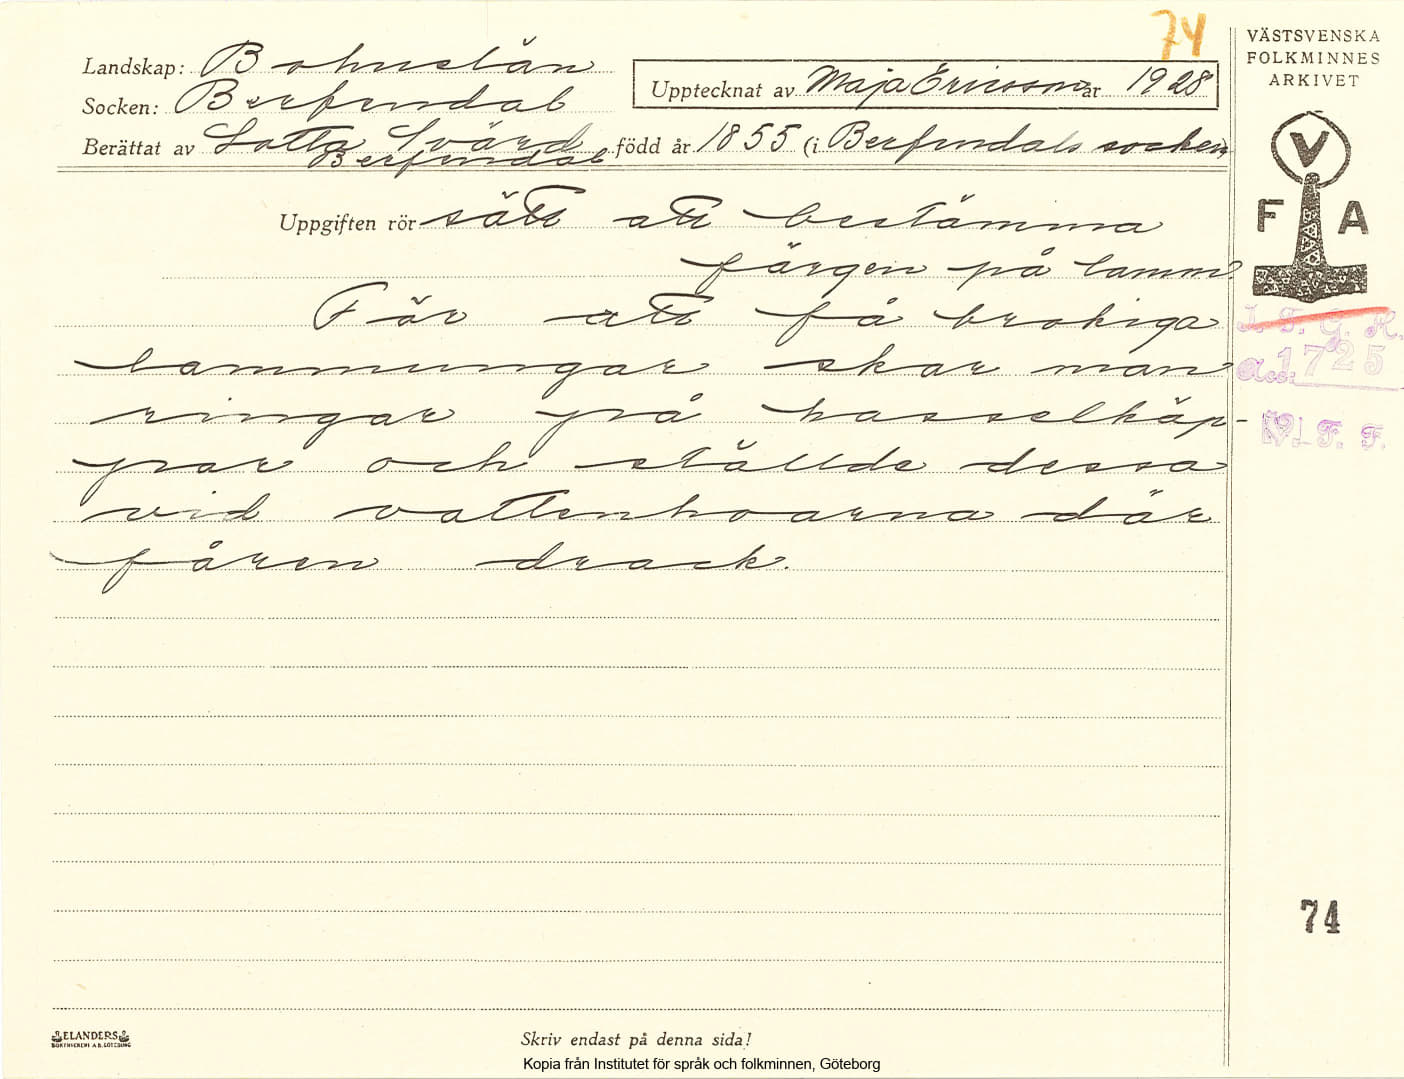 74
Landskap: Bohuslän
Socken: Berfendal
Upptecknat av Maja Ericsson år 1928
Berättat av Lotta Svärd född år 1855 (i Berfendals socken
Berfendal
Uppgiften rör sätt att bestämma
färgen på lamm.
För att få brokiga
lammungar skar man
ringar på hasselkäp-
par och ställde dessa
vid vattenhoarna där
fåren drack.
VÄSTSVENSKA
FOLKMINNES
ARKIVET
V
F A
I. F. G. H.
Acc. 1725
V. F. F.
74
ELANDERS
BOKTRYCKERI A.B. GÖTEBORG
Skriv endast på denna sida!
Kopia från Institutet för språk och folkminnen, Göteborg